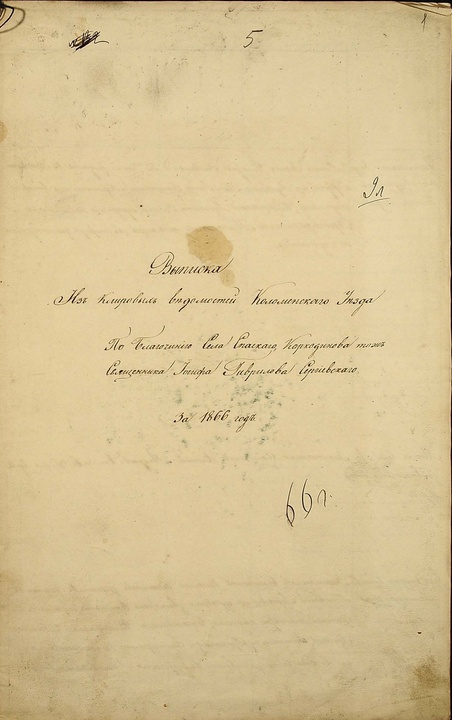 5
1
9л
Выписка
Изъ Клировыхъ вѣдомостей Коломенскаго Уѣзда
По Благочинію Села Спаскаго, Коркодинова тожъ
Священника Іосифа Гаврилова Сергіевскаго
За 1866 годъ.
66 г.